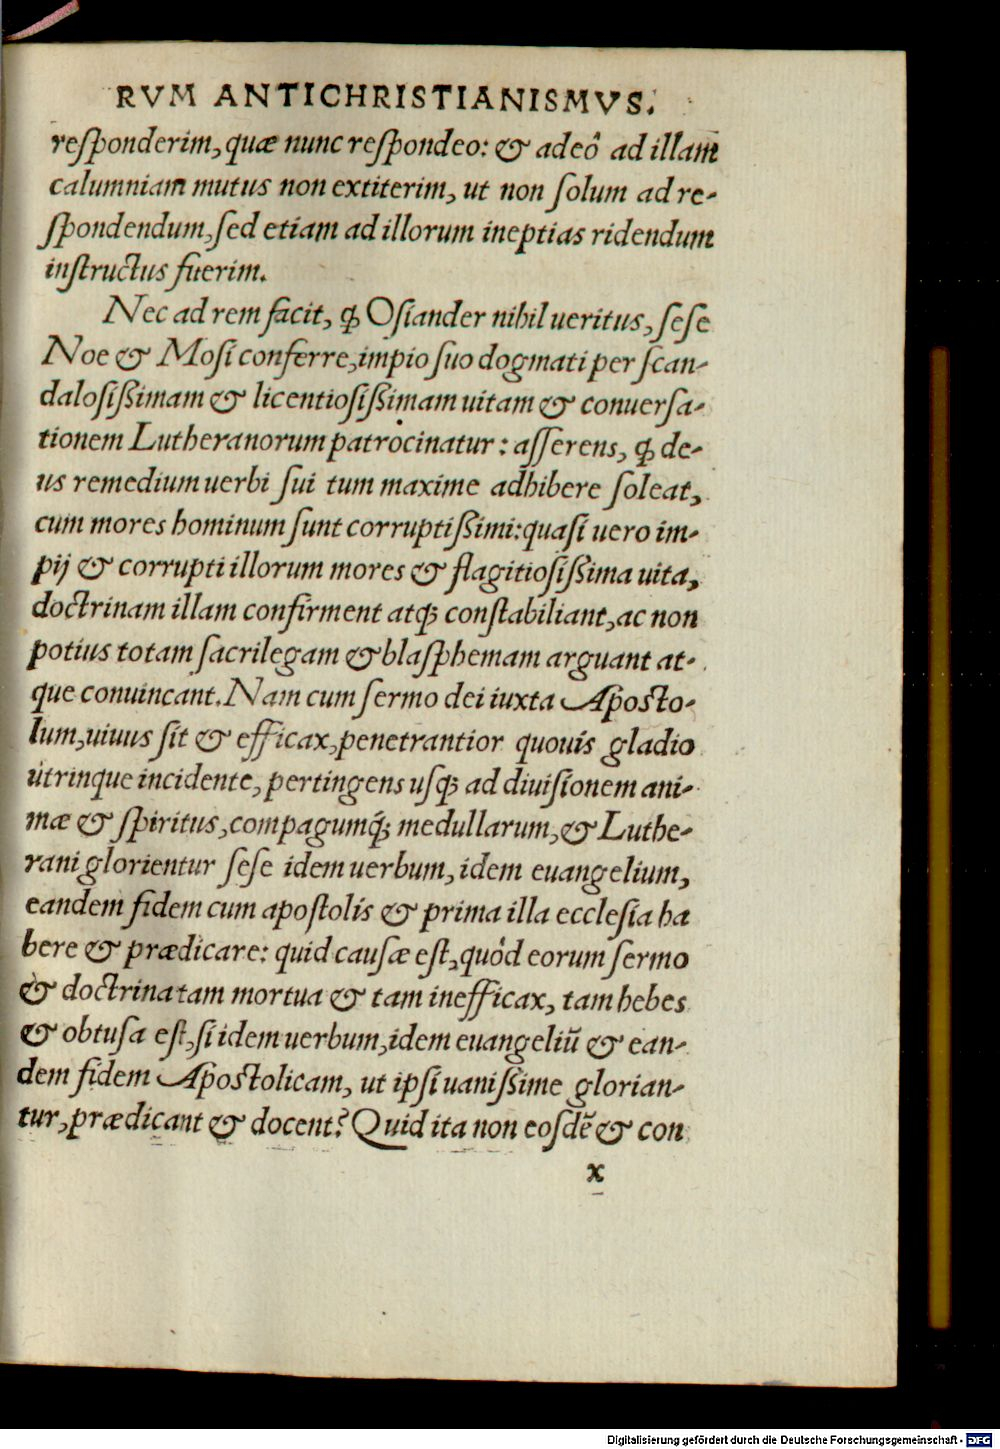 RVM ANTICHRISTIANISMVS.
responderim, quæ nunc respondeo: & adeô ad illam
calumniam mutus non extiterim, ut non solum ad re-
spondendum, sed etiam ad illorum ineptias ridendum
instructus fuerim.
Nec ad rem facit, ꝙ Osiander nihil ueritus, sese
Noe & Mosi conferre, impio suo dogmati per scan-
dalosißimam & licentiosißimam uitam & conuersa-
tionem Lutheranorum patrocinatur: asserens, ꝙ de-
us remedium uerbi sui tum maxime adhibere soleat,
cum mores hominum sunt corruptißimi: quasi uero im-
pij & corrupti illorum mores & flagitiosißima uita,
doctrinam illam confirment atqꝫ constabiliant, ac non
potius totam sacrilegam & blasphemam arguant at-
que conuincant. Nam cum sermo dei iuxta Aposto-
lum, uiuus sit & efficax, penetrantior quouis gladio
utrinque incidente, pertingens usqꝫ ad diuisionem ani-
mæ & spiritus, compagumq́ꝫ medullarum, & Luthe-
rani glorientur sese idem uerbum, idem euangelium,
eandem fidem cum apostolis & prima illa ecclesia ha
bere & prædicare: quid causæ est, quôd eorum sermo
& doctrina tam mortua & tam inefficax, tam hebes
& obtusa est, si idem uerbum, idem euangeliũ & ean-
dem fidem Apostolicam, ut ipsi uanißime glorian-
tur, prædicant & docent? Quid ita non eosdẽ & con
x
Digitalisierung gefördert durch die Deutsche Forschungsgemeinschaft - DFG